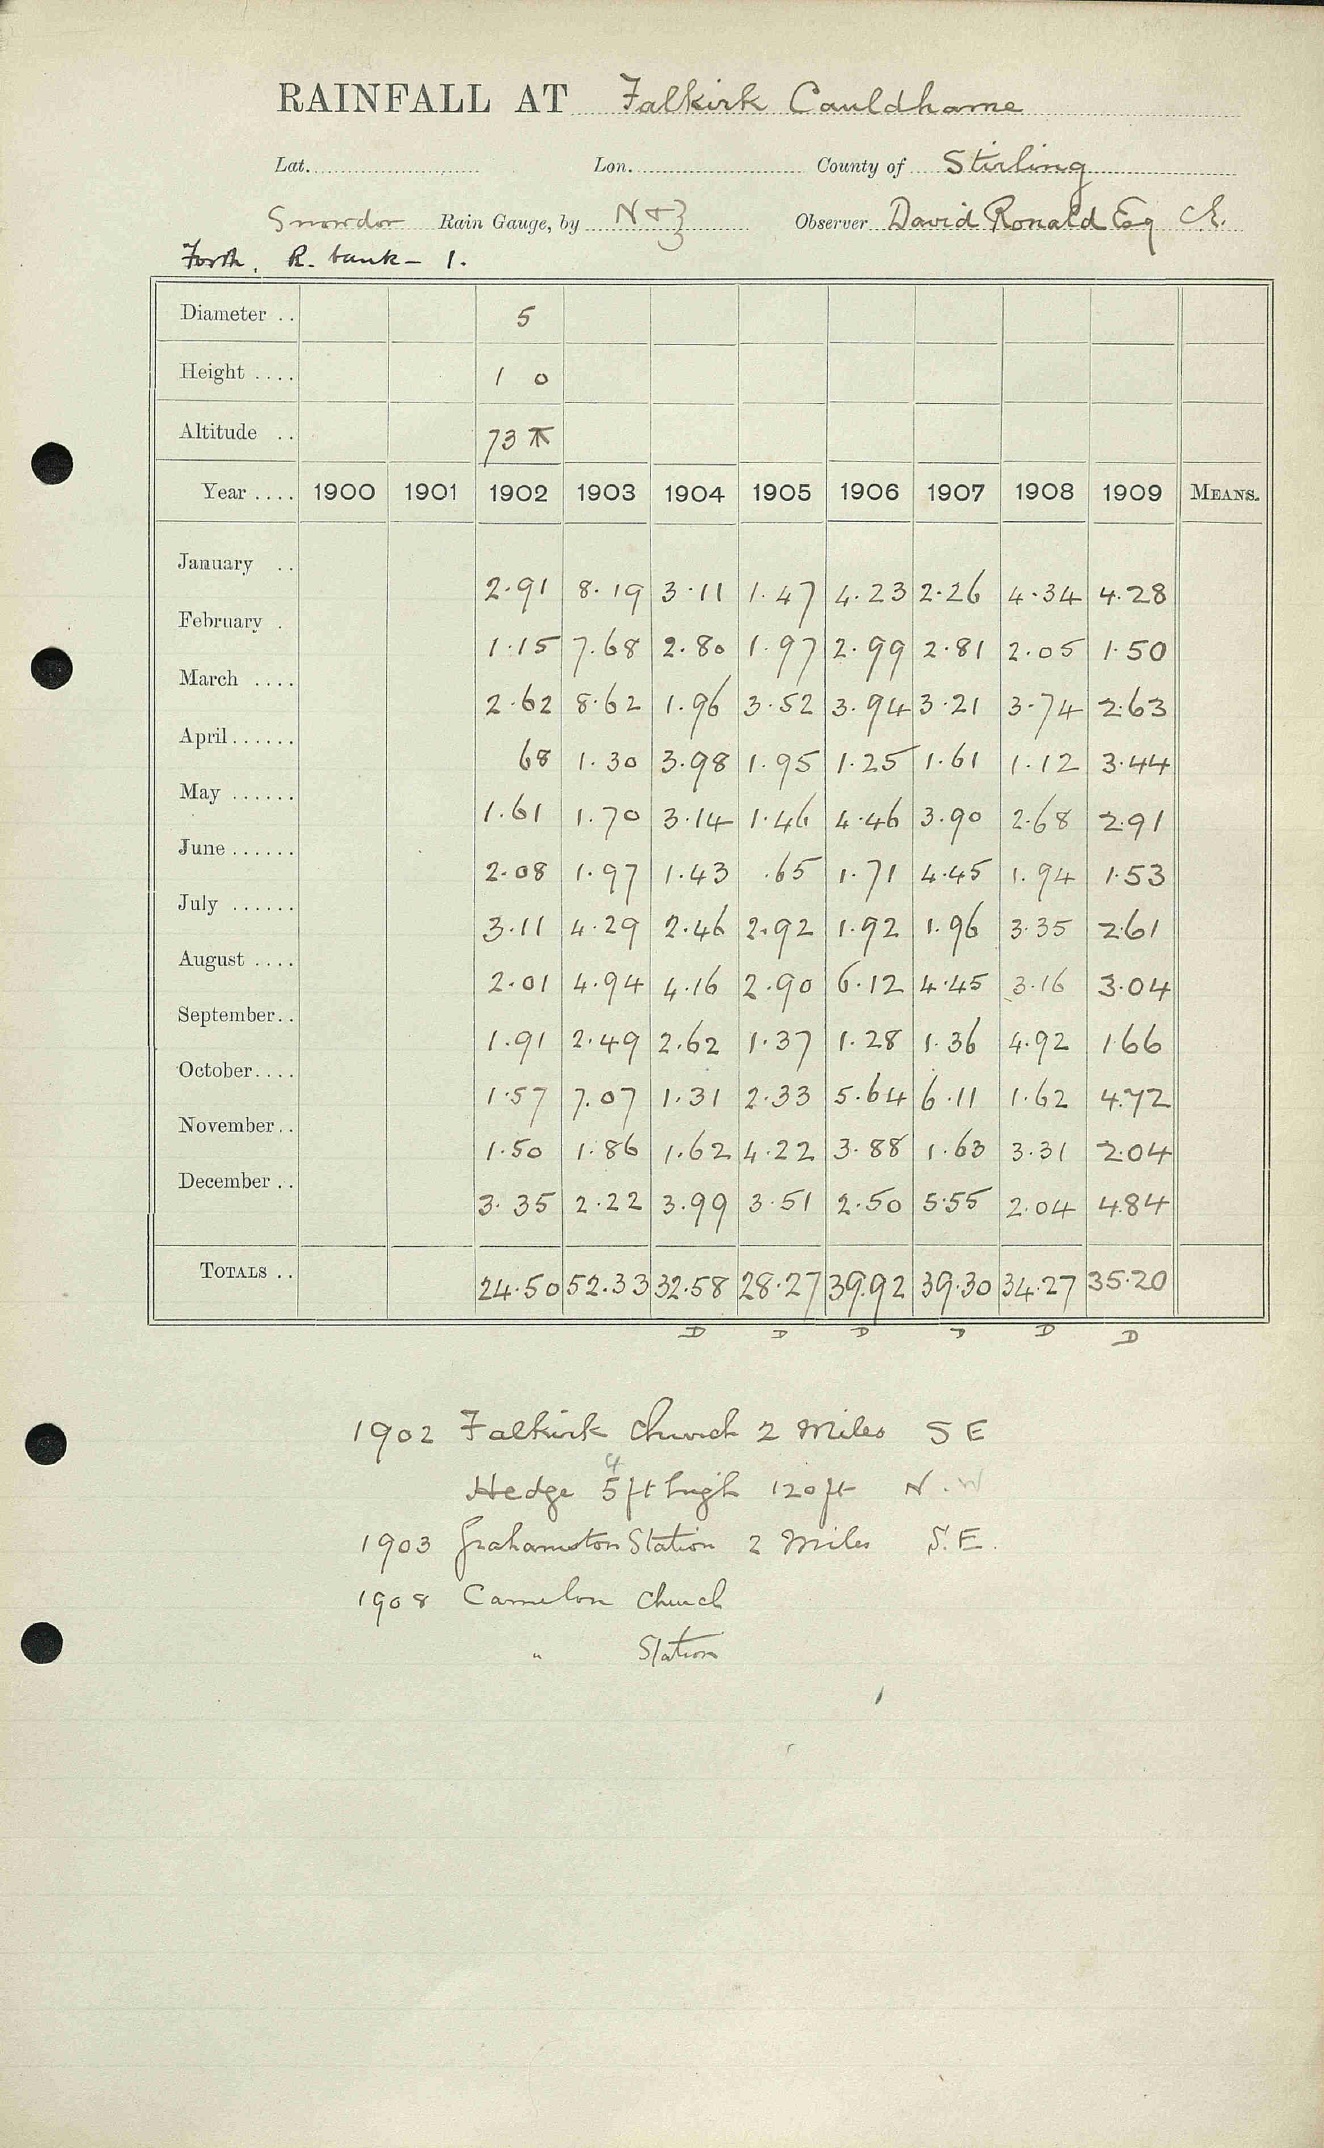 RAINFALL AT Falkirk Cauldhame
Lat. Lon. County of Stirling
Snowdon Rain Gauge, by N & Z Observer David Ronald Esq C.E.
Forth. R. bank - 1.
Diameter .. 5
Height .... 1 0
Altitude .. 73
Year .... 1900 1901 1902 1903 1904 1905 1906 1907 1908 1909 MEANS.
January .. 2.91 8.19 3.11 1.47 4.23 2.26 4.34 4.28
February . 1.15 7.68 2.80 1.97 2.99 2.81 2.05 1.50
March .... 2.62 8.62 1.96 3.52 3.94 3.21 3.74 2.63
April...... 68 1.30 3.98 1.95 1.25 1.61 1.12 3.44
May ...... 1.61 1.70 3.14 1.46 4.46 3.90 2.68 2.91
June...... 2.08 1.97 1.43 .65 1.71 4.45 1.94 1.53
July ...... 3.11 4.29 2.46 2.92 1.92 1.96 3.35 2.61
August .... 2.01 4.94 4.16 2.90 6.12 4.45 3.16 3.04
September.. 1.91 2.49 2.62 1.37 1.28 1.36 4.92 1.66
October.... 1.57 7.07 1.31 2.33 5.64 6.11 1.62 4.72
November.. 1.50 1.86 1.62 4.22 3.88 1.63 3.31 2.04
December .. 3.35 2.22 3.99 3.51 2.50 5.55 2.04 4.84
TOTALS .. 24.50 52.33 32.58 28.27 39.92 39.30 34.27 35.20
D D D D D D
1902 Falkirk Church 2 Miles S E
4
Hedge 5 ft high 120 ft N. W
1903 Grahamston Station 2 Miles S.E.
1908 Camelon Church
" Station